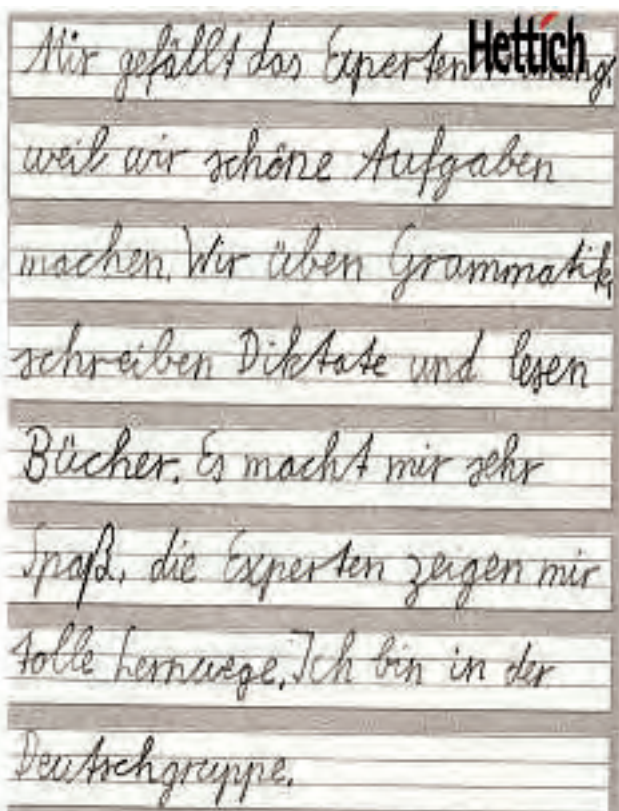 Hettich
Mir gefällt das
weil wir schöne Aufgaben
machen. Wir üben Grammatik,
schreiben Diktate und lesen
Bücher. Es macht mir sehr
Spaß, die Experten zeigen mir
tolle Lernwege. Ich bin in der
Deutschgruppe.